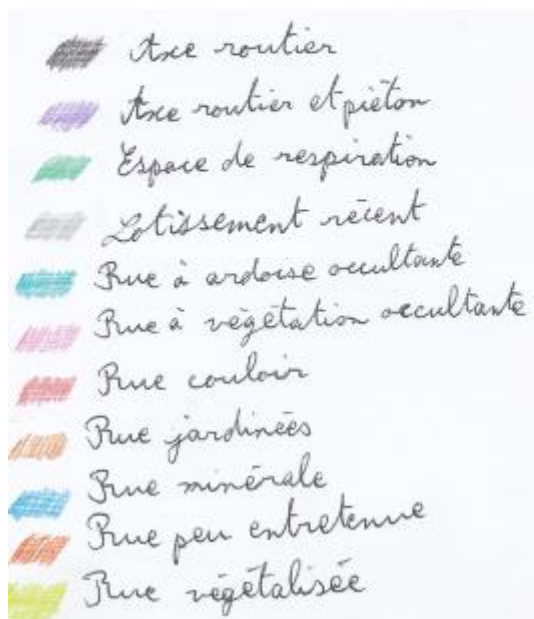 Axe routier
Axe routier et piéton
Espace de respiration
Lotissement récent
Rue à ardoise occultante
Rue à végétation occultante
Rue couloir
Rue jardinées
Rue minérale
Rue peu entretenue
Rue végétalisée